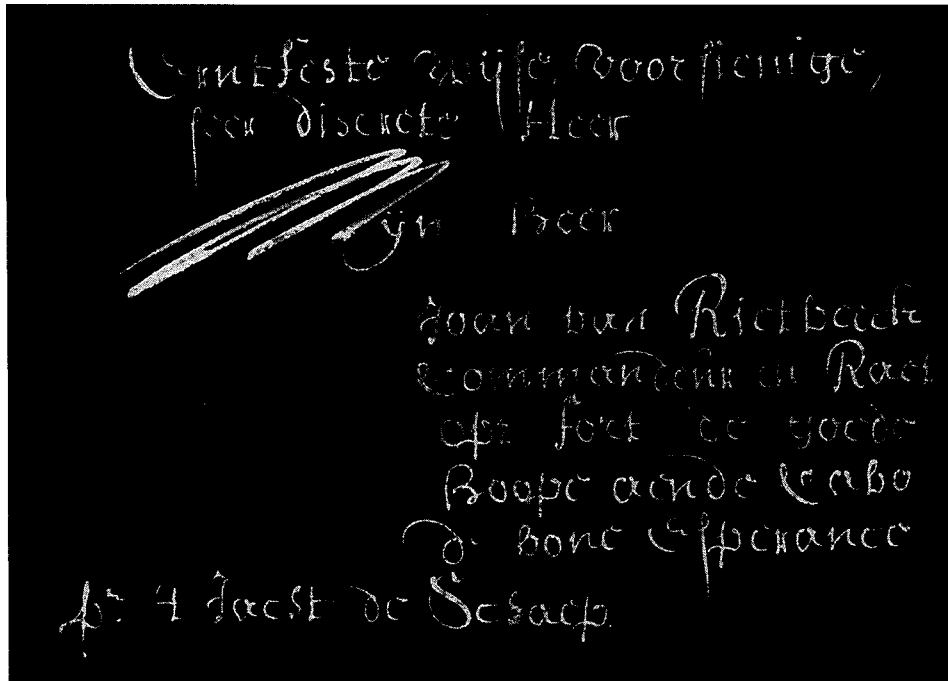 Erntfeste wijse, voorsienige,
seer discrete Heer
Mijn Heer
Joan van Rietbeeck
Commandeur en Raet
opt fort de goede
Hoope aende Cabo
de bone Esperance
pr. 't Jacht de Schaep.